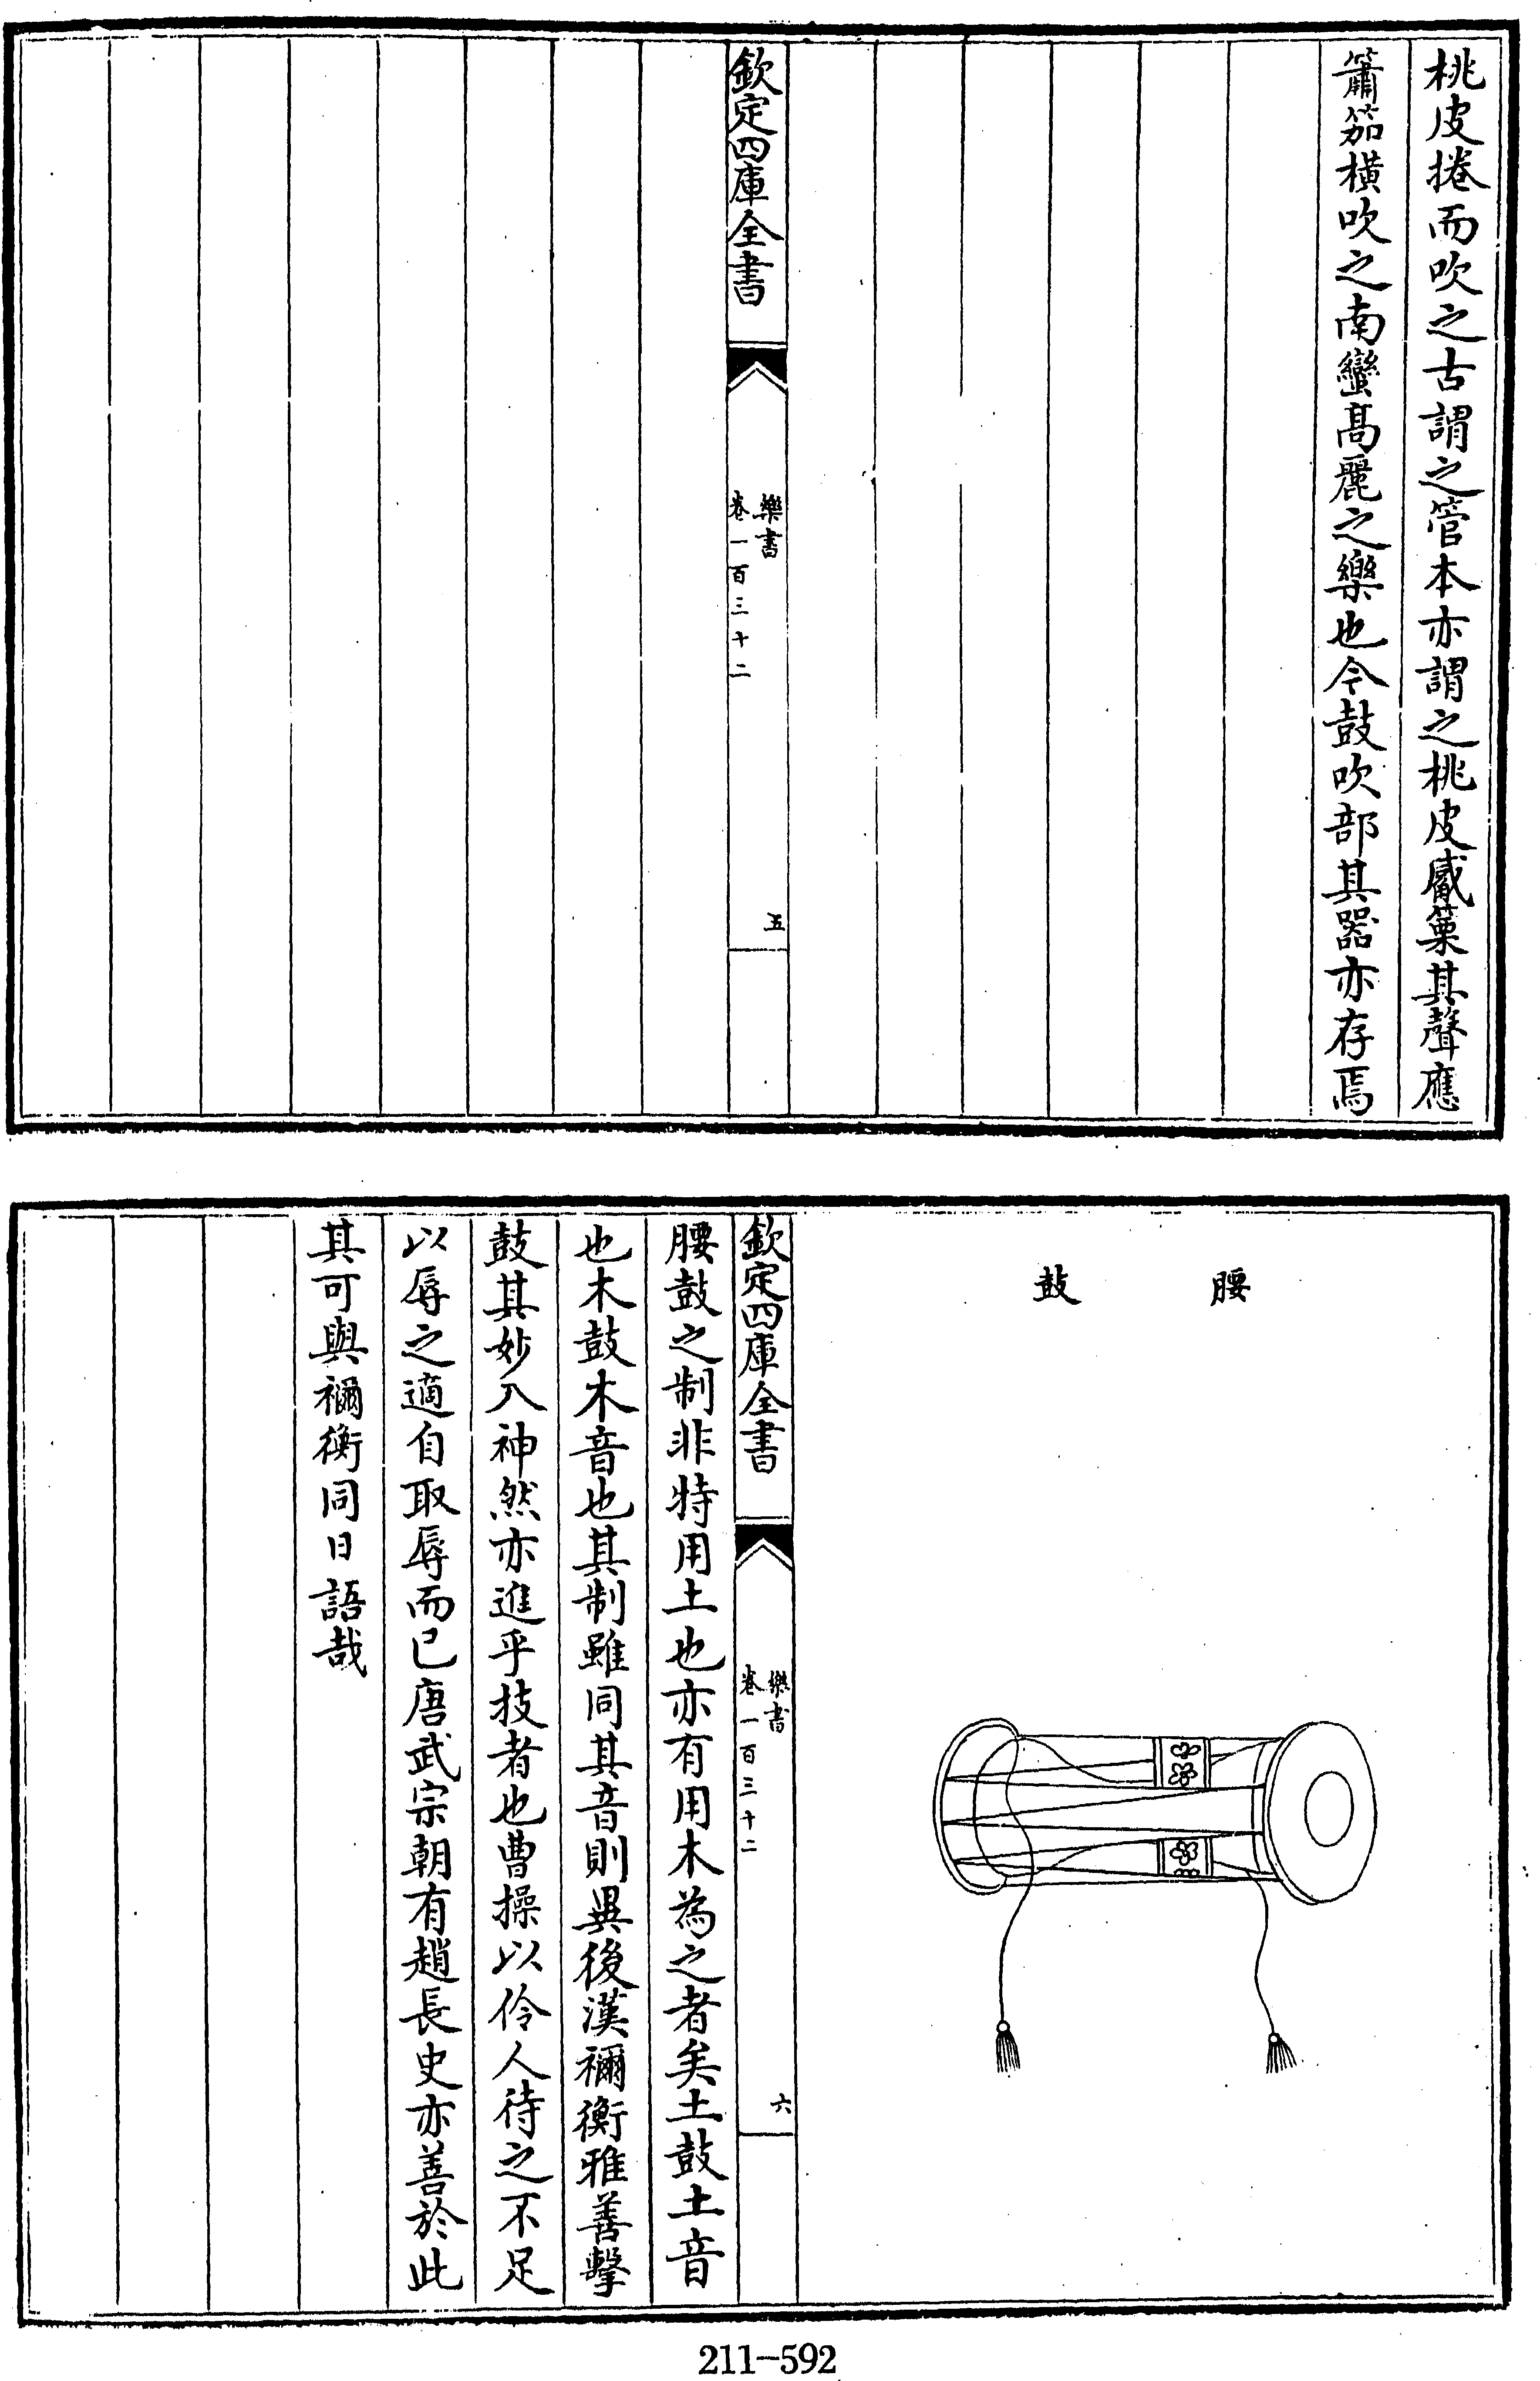 桃皮捲而吹之古謂之管本亦謂之桃皮觱篥其聲應
簫笳橫吹之南蠻高麗之樂也今鼓吹部其器亦存焉
欽定四庫全書
樂書
卷一百三十二
五
腰鼓
欽定四庫全書
樂書
卷一百三十二
六
腰鼓之制非特用土也亦有用木為之者矣土鼓土音
也木鼓木音也其制雖同其音則異後漢禰衡雅善擊
鼓其妙入神然亦進乎技者也曹操以伶人待之不足
以辱之適自取辱而已唐武宗朝有趙長史亦善於此
其可與禰衡同日語哉
211-592